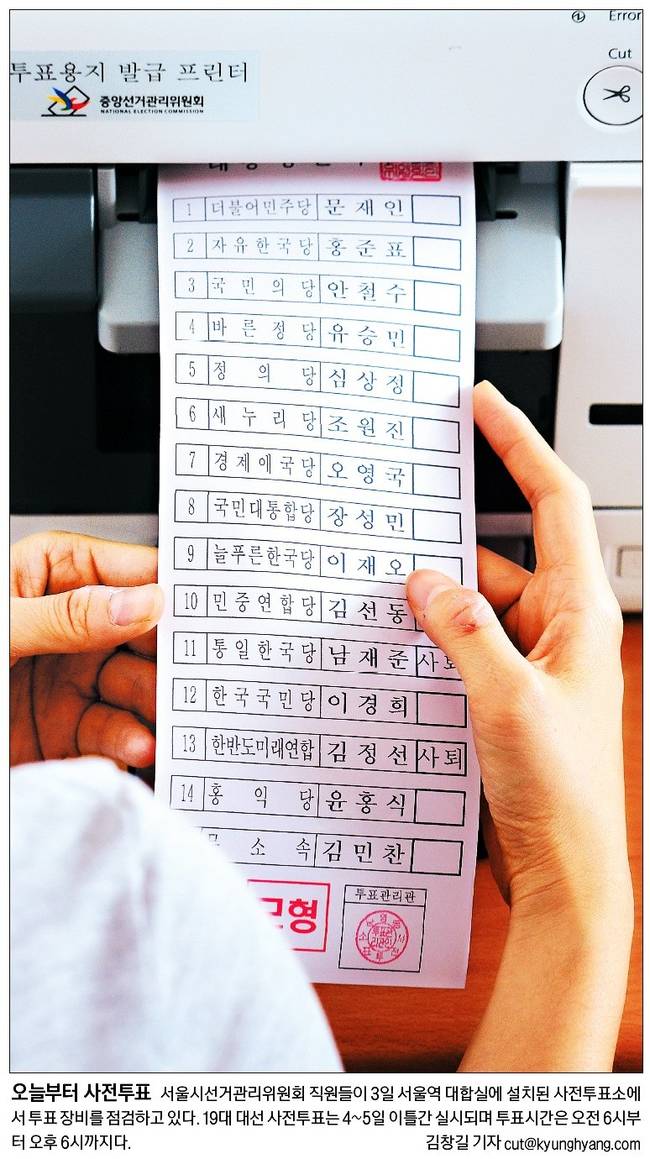 Error
Cut
투표용지 발급 프린터
중앙선거관리위원회
NATIONAL ELECTION COMMISSION
1 더불어민주당 문재인
2 자유한국당 홍준표
3 국민의당 안철수
4 바른정당 유승민
5 정의당 심상정
6 새누리당 조원진
7 경제애국당 오영국
8 국민대통합당 장성민
9 늘푸른한국당 이재오
10 민중연합당 김선동
11 통일한국당 남재준 사퇴
12 한국국민당 이경희
13 한반도미래연합 김정선 사퇴
14 홍익당 윤홍식
소속 김민찬
모형
투표관리관
오늘부터 사전투표 서울시선거관리위원회 직원들이 3일 서울역 대합실에 설치된 사전투표소에
서 투표 장비를 점검하고 있다. 19대 대선 사전투표는 4~5일 이틀간 실시되며 투표시간은 오전 6시부
터 오후 6시까지다. 김창길 기자 cut@kyunghyang.com